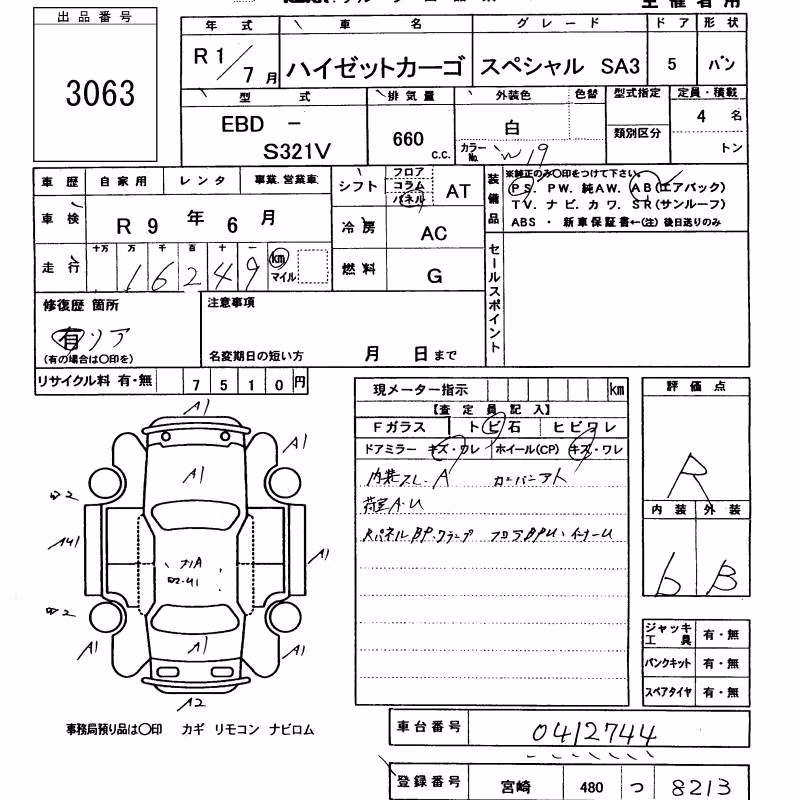 主催者用
出品番号
3063
年式 車名 グレード ドア 形状
R1/7月 ハイゼットカーゴ スペシャル SA3 5 バン
型式 排気量 外装色 色替 型式指定 定員・積載
EBD - S321V 660 C.C. 白 類別区分 4 名
カラーNo. W19 トン
車歴 自家用 レンタ 事業.営業車
シフト フロア コラム パネル AT
装備品 ※純正のみ〇印をつけて下さい。
PS. PW. 純AW. AB(エアバック)
TV. ナビ. カワ. SR(サンルーフ)
ABS ・ 新車保証書←(注) 後日送りのみ
車検 R 9 年 6 月
冷房 AC
走行 十万 万 千 百 十 一
16249 km マイル
燃料 G
セールスポイント
修復歴 箇所 注意事項
有 リア
(有の場合は〇印を)
名変期日の短い方 月 日まで
リサイクル料 有・無 7510円
現メーター指示 km
【査定員記入】
Fガラス トビ石 ヒビワレ
ドアミラー キズ・ワレ ホイール(CP) キズ・ワレ
内装スレ.A
荷室A.U
評価点
R
内装 外装
b B
A1
A1
A1
A1
A1
A1
A1
A1
A2
ジャッキ工具 有・無
パンクキット 有・無
スペアタイヤ 有・無
事務局預り品は〇印 カギ リモコン ナビロム
車台番号 0412744
登録番号 宮崎 480 つ 8213